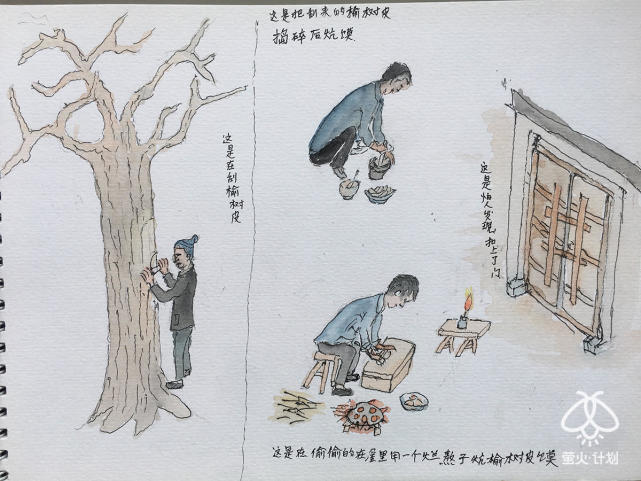 这是在刮榆树皮
这是把刮来的榆树皮
捣碎后炕馍
这是怕人发现,扣上了门
这是在偷偷的在屋里用一个烂熬子炕榆树皮馍
萤火·计划